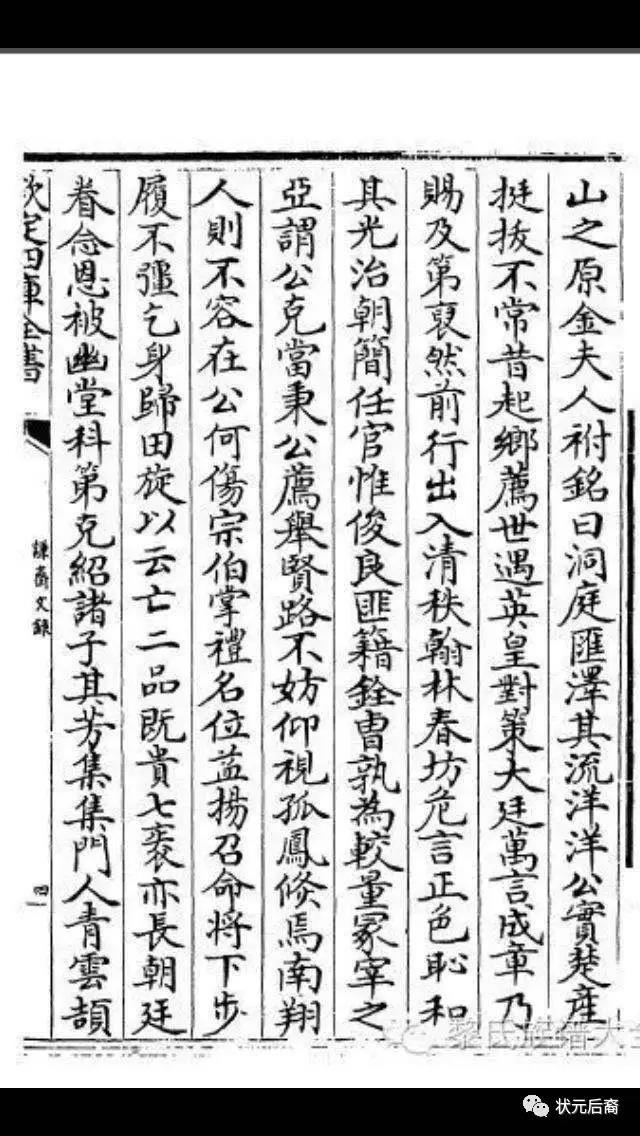 山之原金夫人祔銘曰洞庭匯澤其流洋洋公實楚産
挺拔不常昔起鄉薦世遇英皇對策大廷萬言成章乃
賜及第裒然前行出入清秩翰林春坊危言正色恥和
其光治朝簡任官惟俊良匪籍銓曹孰為較量冢宰之
亞謂公克當秉公薦舉賢路不妨仰視孤鳳倐焉南翔
人則不容在公何傷宗伯掌禮名位益揚召命将下步
履不彊乞身歸田旋以云亡二品既貴七袠亦長朝廷
眷念恩被幽堂科第克紹諸子其芳集集門人青雲頡
欽定四庫全書
謙齋文錄
四
黎氏
状元后裔